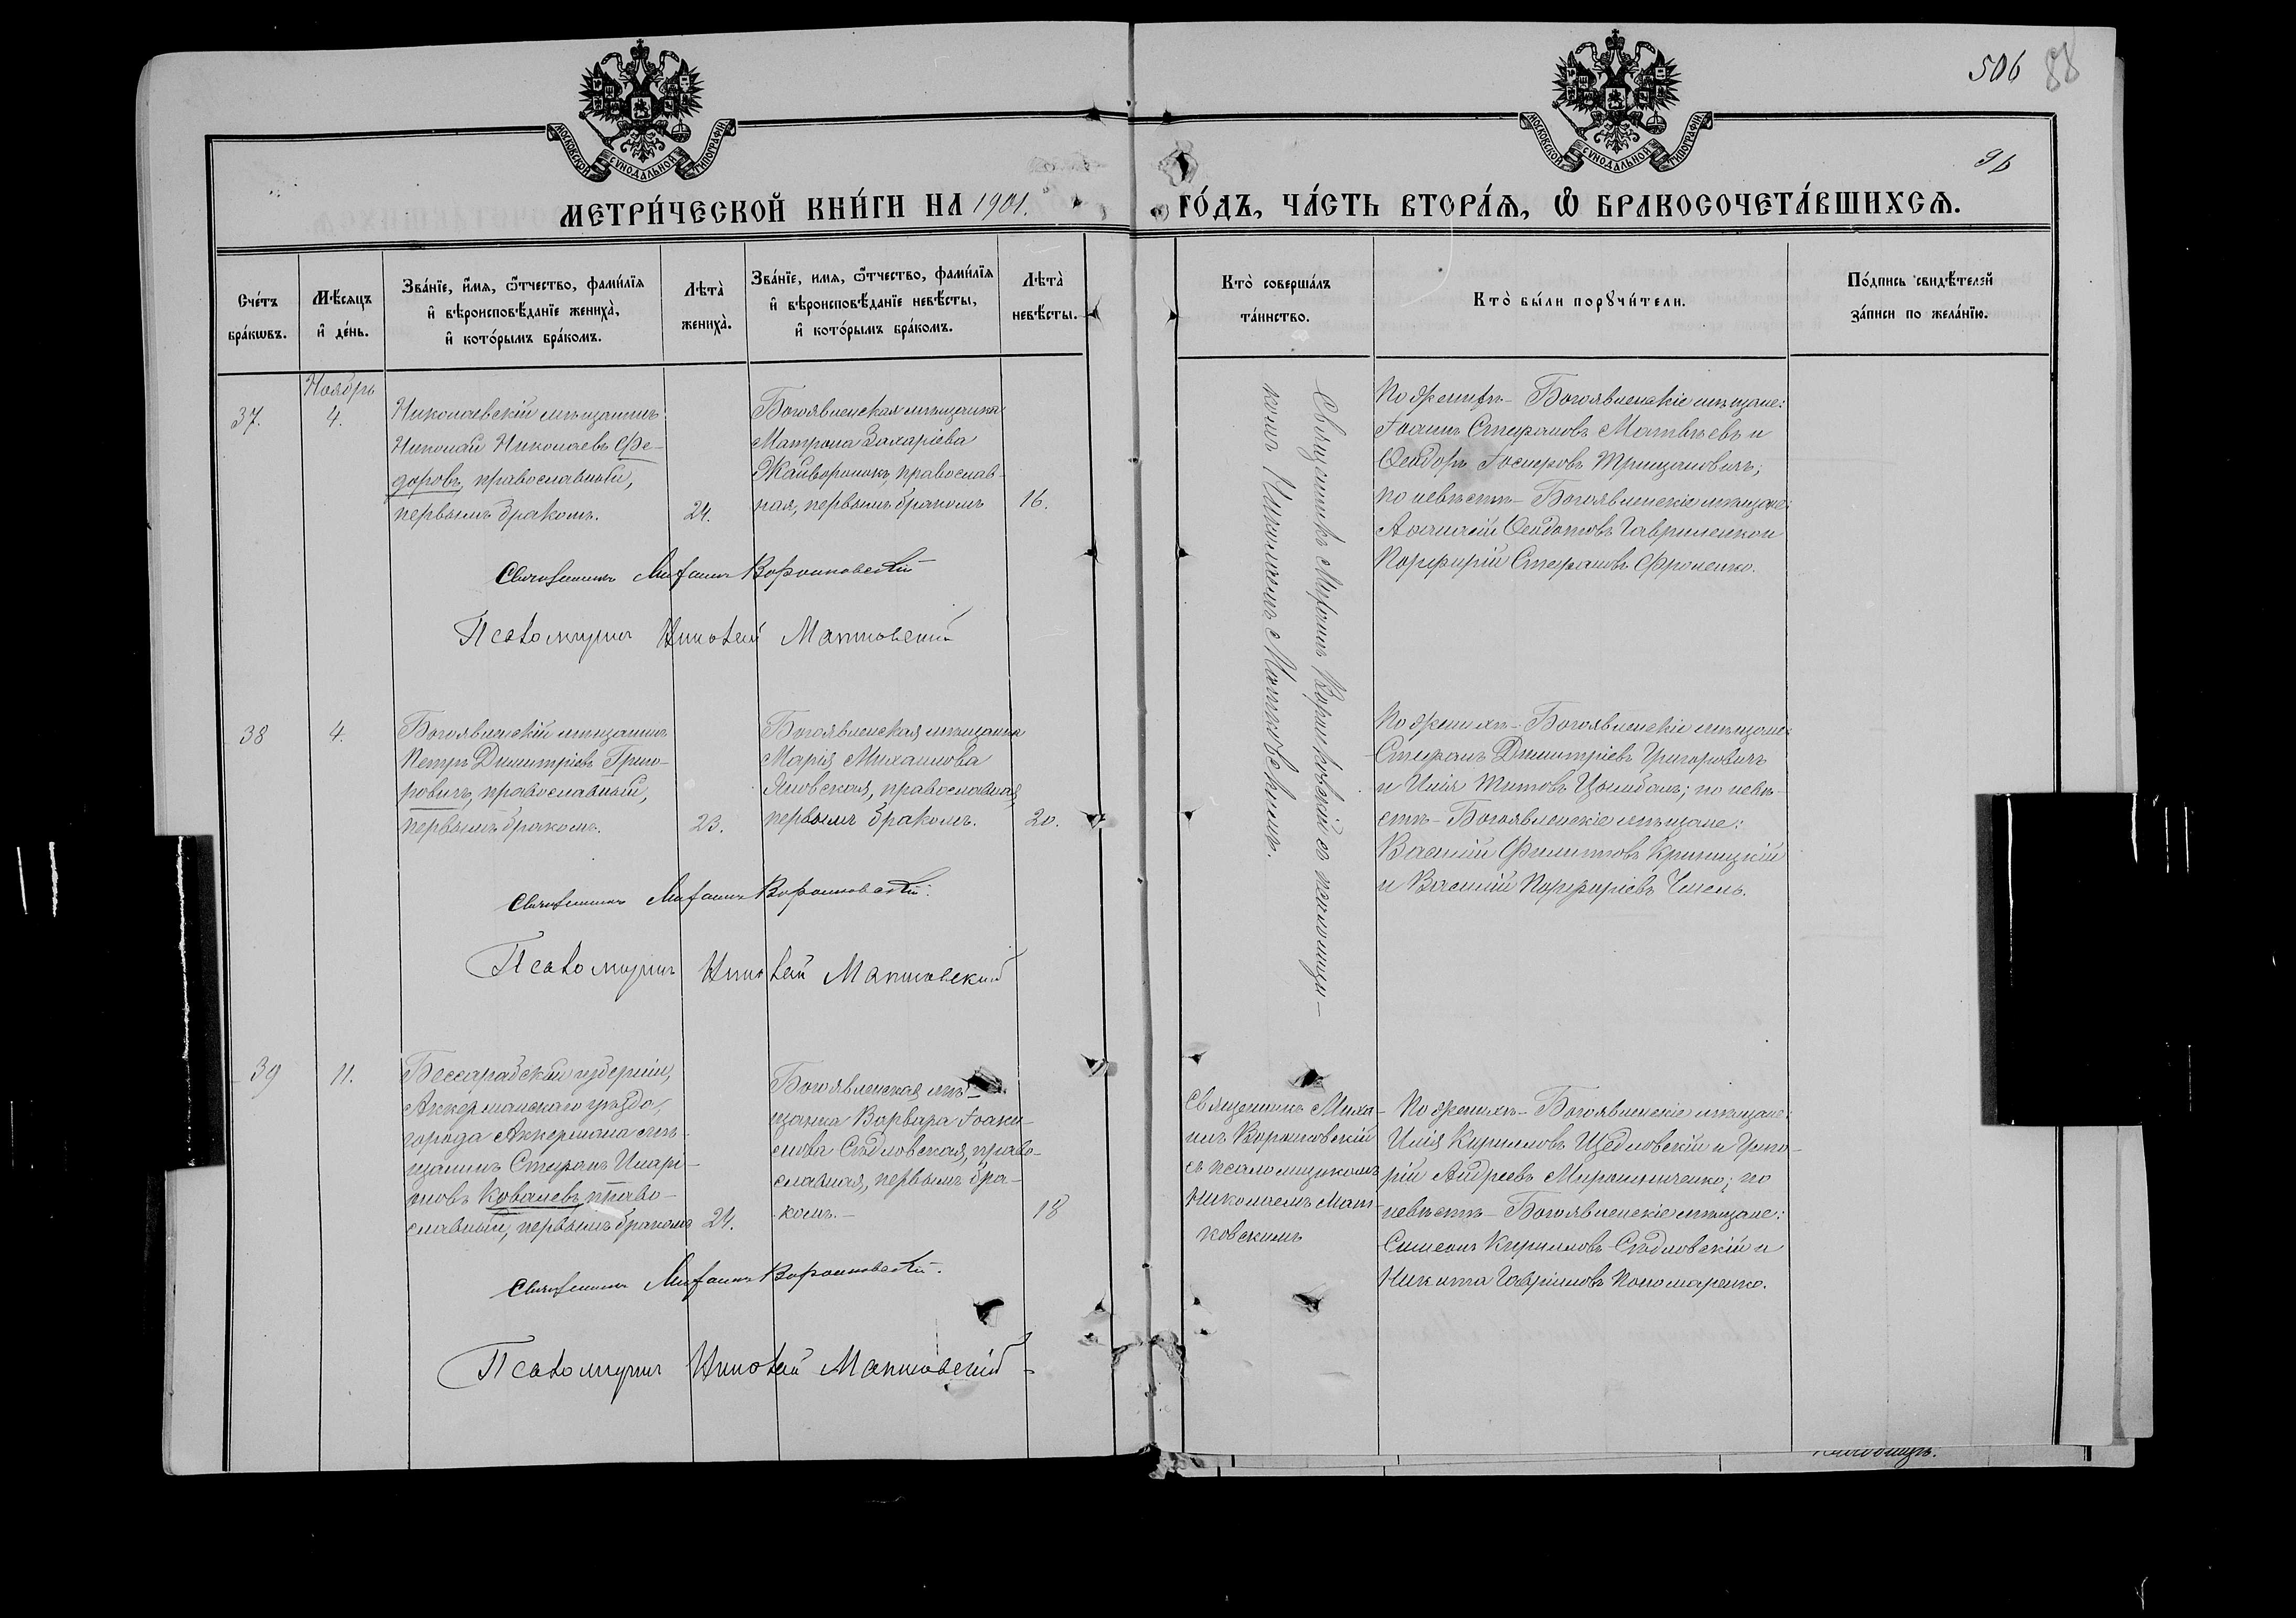 506
88
96
МОСКОВСКОЙ СУНОДАЛЬНОЙ ТИПОГРАФІИ
МОСКОВСКОЙ СУНОДАЛЬНОЙ ТИПОГРАФІИ
МЕТРИ́ЧЕСКОЙ КНИ́ГИ НА 1901.
ГО́ДЪ, ЧА́СТЬ ВТОРА́Я, Ѡ҆ БРАКОСОЧЕТА́ВШИХСѦ.
Сче́тъ
бра́кѡвъ.
Мѣ́сяцъ
и҆ де́нь.
Зва́нїе, и҆́мя, ѻ҆́тчество, фами́лїя
и҆ вѣроисповѣ́данїе жениха̀,
и҆ кото́рымъ бра́комъ.
Лѣта̀
жениха̀.
Зва́нїе, имя, ѻ҆́тчество, фами́лїя
и҆ вѣроисповѣ́данїе невѣ́сты,
и҆ кото́рымъ бра́комъ.
Лѣта̀
невѣ́сты.
Кто̀ соверша́лъ
та́инство.
Кто̀ бы́ли порꙋчи́тели.
По́дпись свидѣ́телей
за́писи по жела́нїю.
Ноябрь
37.
4.
Николаевскій мѣщанинъ
Николай Николаевъ Фе-
доровъ, православный,
первымъ бракомъ.
24.
Богоявленская мѣщанка
Матрона Захаріева
Жайворонокъ, православ-
ная, первымъ бракомъ
16.
Священникъ Митрофанъ Ворошковскій съ псаломщи-
комъ Николаемъ Матковскимъ.
По женихѣ - Богоявленскіе мѣщане:
Іоаннъ Стефановъ Матвѣевъ и
Ѳеодоръ Іосифовъ Трищановичъ;
по невѣстѣ - Богоявленскіе мѣщане:
Аѳанасій Ѳеодотовъ Гавриленко и
Порфирій Стефановъ Фроленко.
Священникъ Ворошковскій
Псаломщикъ Николай Матковский
38
4.
Богоявленскій мѣщанинъ
Петръ Димитріевъ Григо-
ровичъ, православный,
первымъ бракомъ.
23.
Богоявленская мѣщанка
Марія Михаилова
Яновская, православная,
первымъ бракомъ.
20.
По женихѣ - Богоявленскіе мѣщане:
Стефанъ Димитріевъ Григоровичъ
и Илія Титовъ Цымбалъ; по невѣ-
стѣ - Богоявленскіе мѣщане:
Василій Филипповъ Криницкій
и Василій Порфиріевъ
Священникъ Ворошковскій
Псаломщикъ Николай Матковский
39
11.
Бессарабской губерніи,
Аккерманскаго уѣзда,
города Аккермана мѣ-
щанинъ Стефанъ Иларі-
оновъ Ковалевъ, право-
славный, первымъ бракомъ
24.
Богоявленская мѣ-
щанка Варвара Іоаки-
мова Сѣдловская, право-
славная, первымъ бра-
комъ.-
18
Священникъ
Ворошковскій
съ псаломщикомъ
Николаемъ Мат-
ковскимъ
По женихѣ - Богоявленскіе мѣщане:
Илія Кирилловъ Щедловскій и Григо-
рій Андреевъ Мирошниченко; по
невѣстѣ - Богоявленскіе мѣщане:
Симеонъ Кирилловъ Сѣдловскій и
Никита Гавріиловъ Пономаренко.
Священникъ Ворошковскій.
Псаломщикъ Николай Матковскій